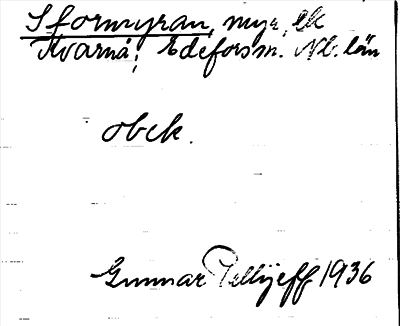 Sformyran, myr, ek
Kvarnå, Edeforsm. Nb. län
obek.
Gunnar Pellijeff 1936